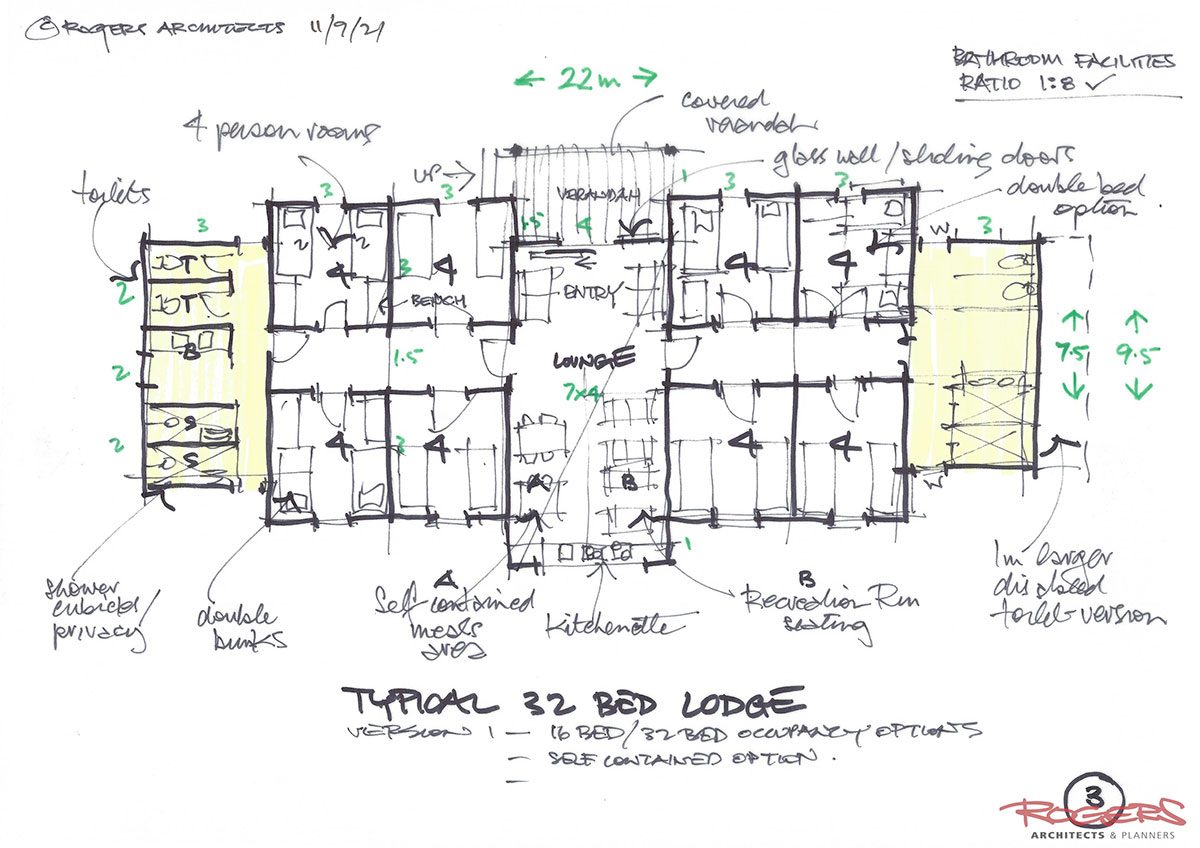 © ROGERS ARCHITECTS 11/9/21
BATHROOM FACILITIES
RATIO 1:8 ✓
← 22m →
covered
verandah
4 person rooms
glass wall / sliding doors
double bed
option
toilets
UP →
VERANDAH
3
3
3
1
3
3
1.5
4
W
3
T
T
2
4
4
3
BENCH
ENTRY
4
4
B
2
1.5
LOUNGE
7x4
7.5
9.5
2
S
S
4
3
4
4
4
A
B
W
1
shower
cubicles/
privacy
double
bunks
A
Self contained
meals
area
Kitchenette
B
Recreation Rm
seating
1m larger
disabled
toilet version
TYPICAL 32 BED LODGE
VERSION 1 – 16 BED/32 BED OCCUPANCY OPTIONS
– SELF CONTAINED OPTION.
–
3
ROGERS
ARCHITECTS & PLANNERS